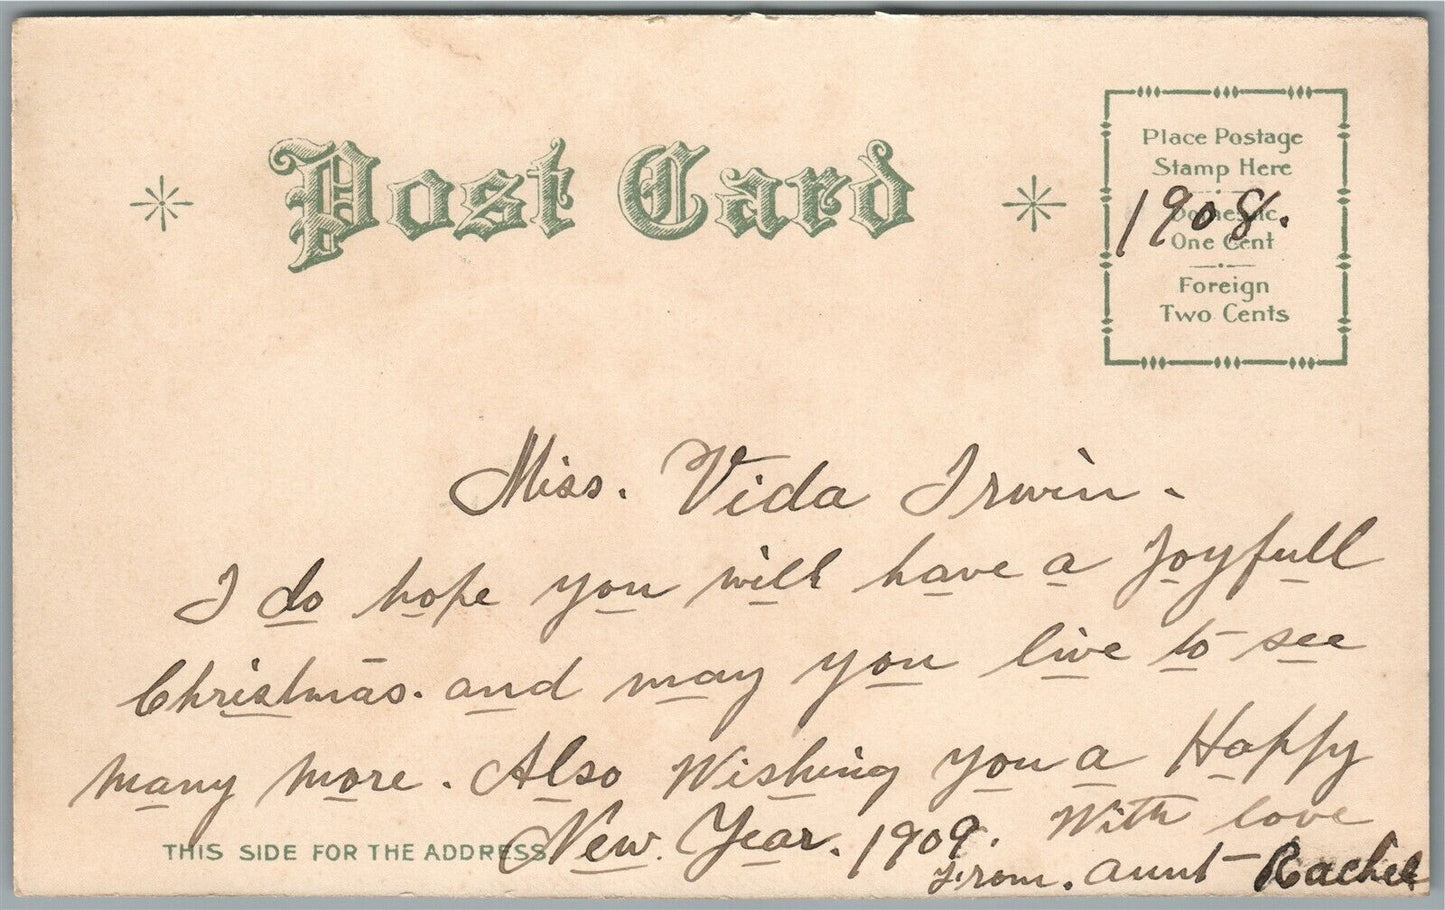 Post Card
Place Postage
Stamp Here
Domestic
One Cent
Foreign
Two Cents
1908.
Miss. Vida Irwin.
I do hope you will have a Joyfull
Christmas. and may you live to see
many more. Also Wishing you a Happy
New. Year. 1909. With love
From. aunt Rachel
THIS SIDE FOR THE ADDRESS